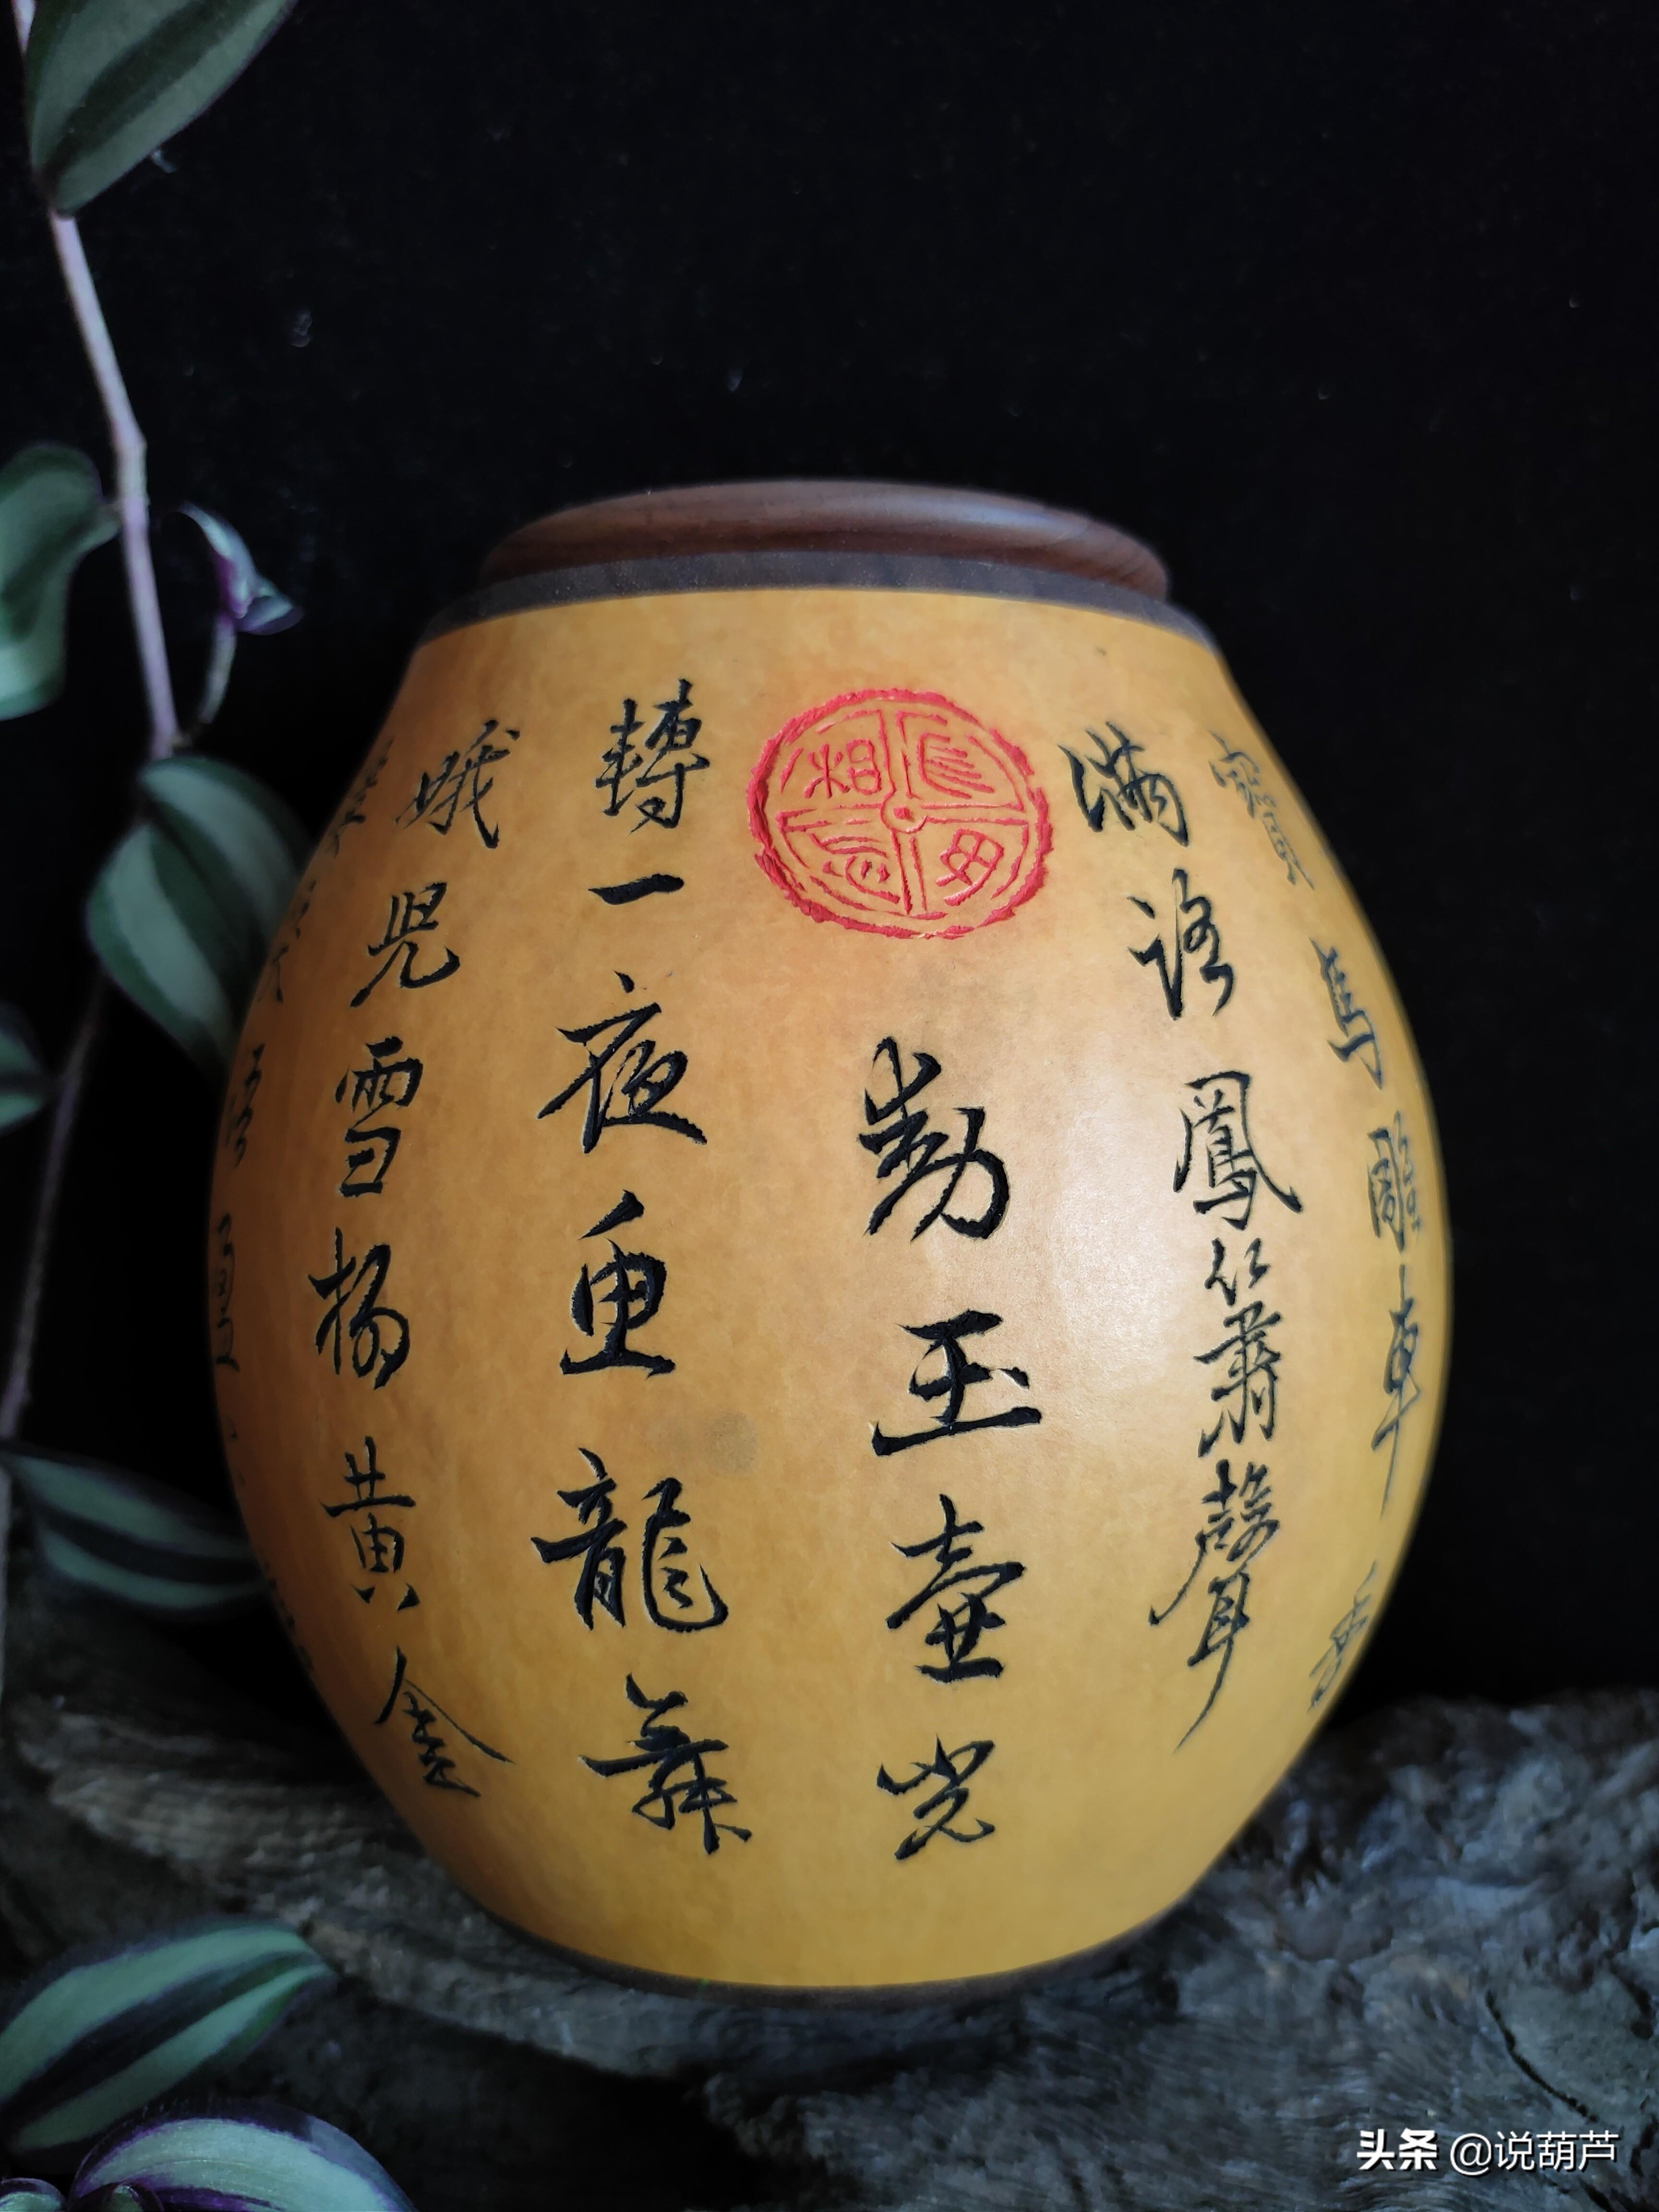 寶馬雕車香
滿路鳳簫聲
長毋相忘
動玉壺光
轉一夜魚龍舞
蛾兒雪柳黃金
头条 @说葫芦